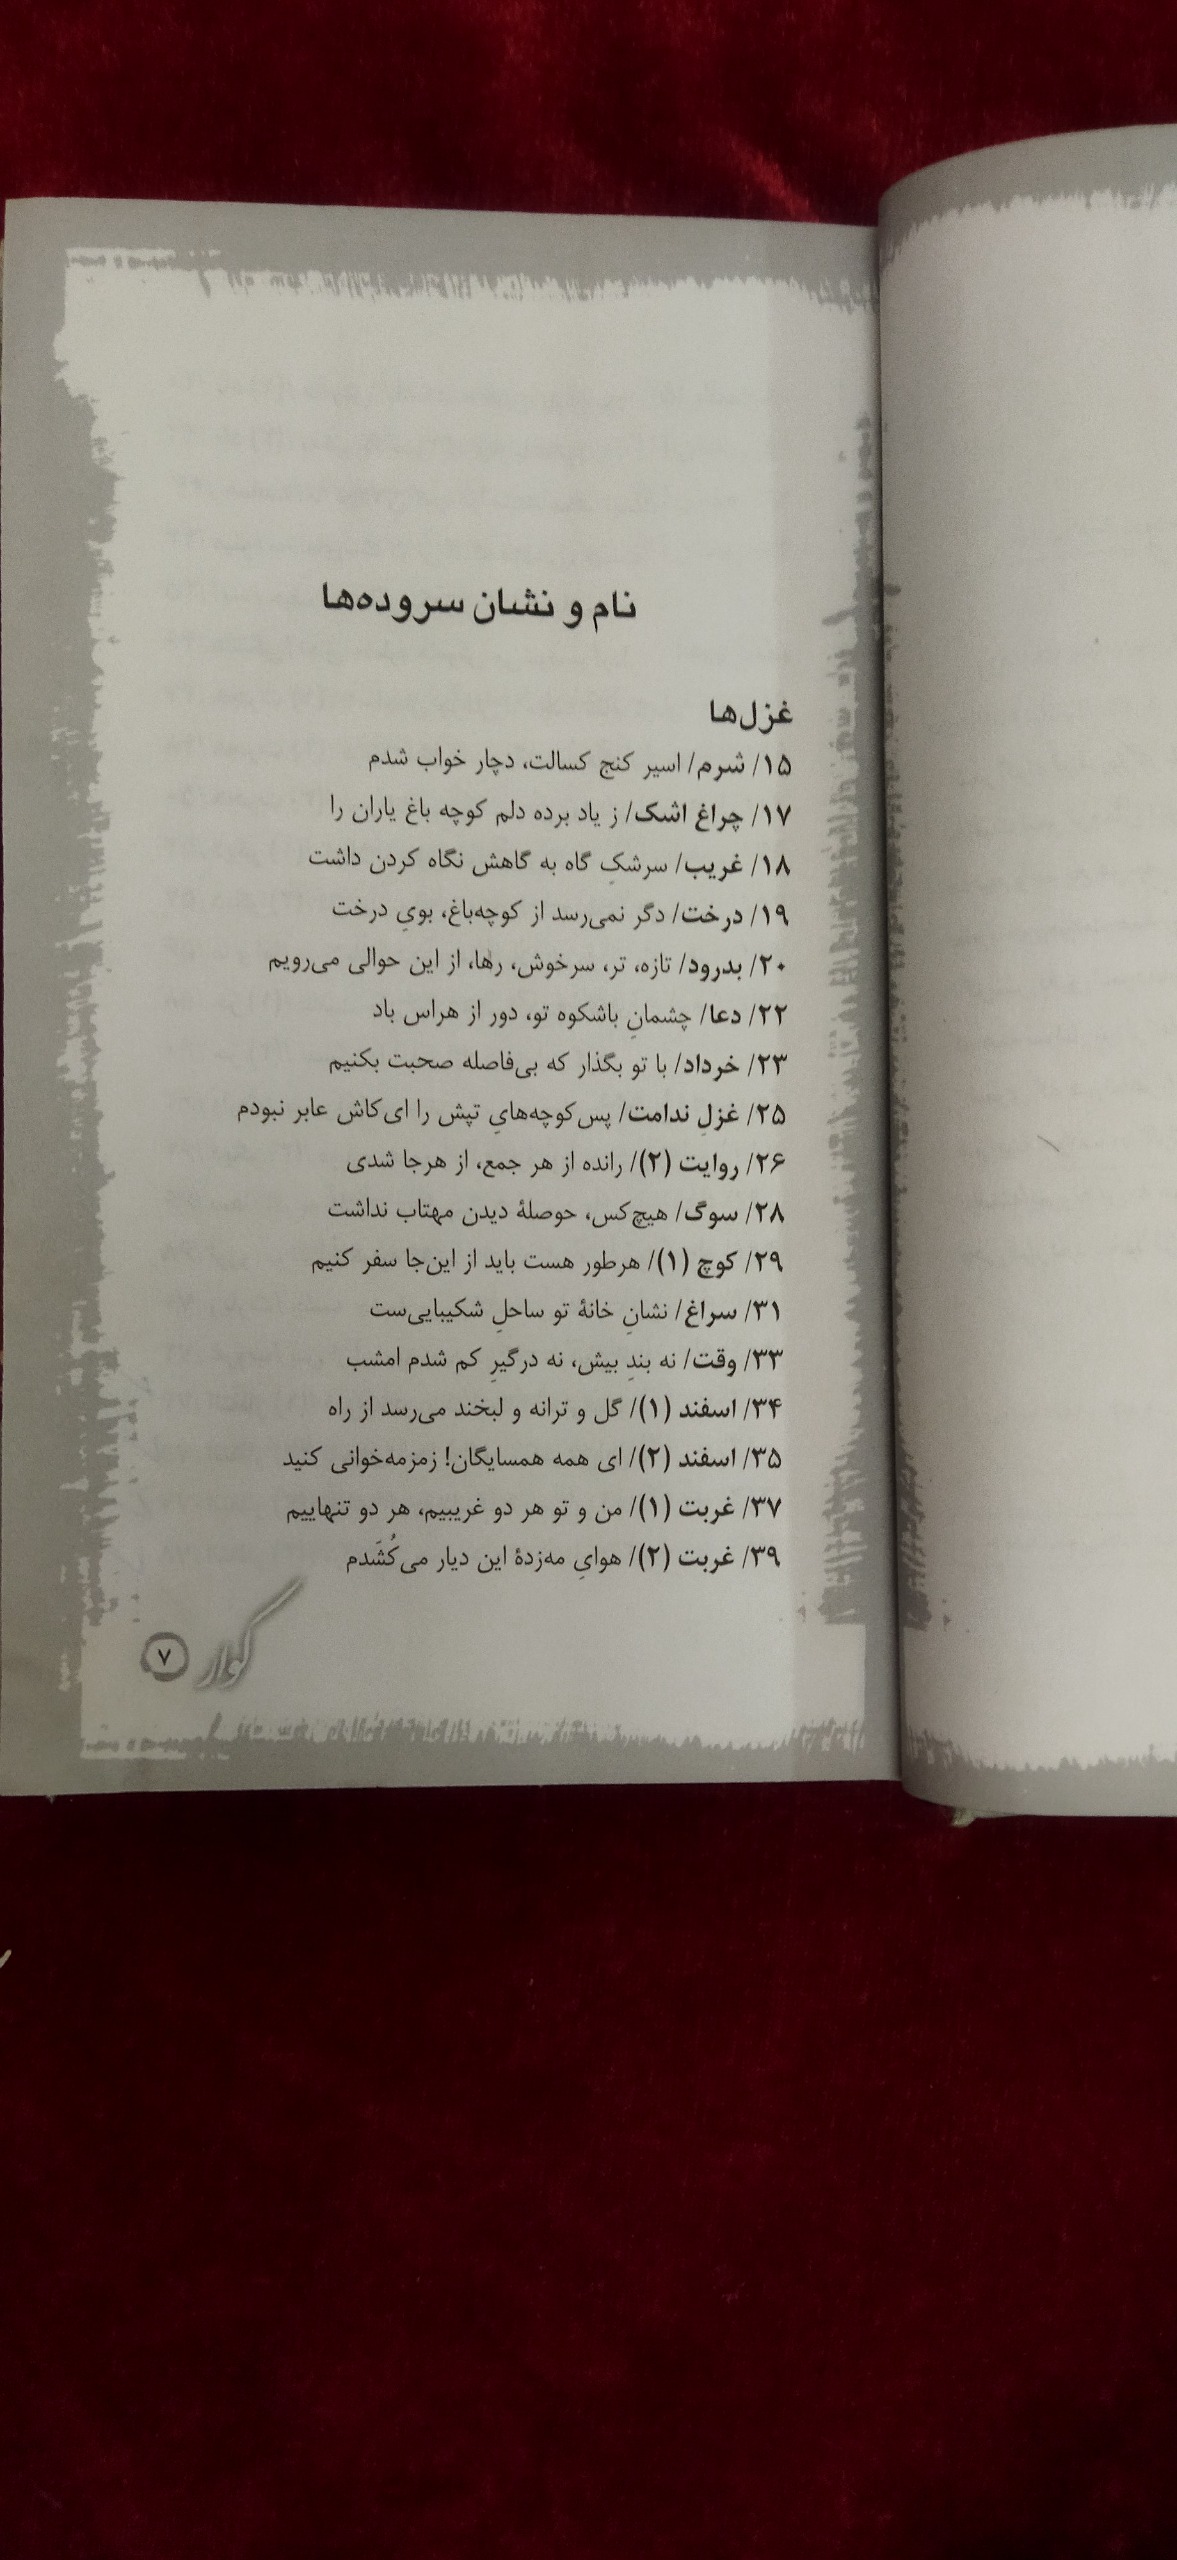 نام و نشان سروده‌ها
غزل‌ها
۱۵/ شرم/ اسیر کنج کسالت، دچار خواب شدم
۱۷/ چراغ اشک/ ز یاد برده دلم کوچه باغ یاران را
۱۸/ غریب/ سرشکِ گاه به گاهش نگاه کردن داشت
۱۹/ درخت/ دگر نمی‌رسد از کوچه‌باغ، بویِ درخت
۲۰/ بدرود/ تازه، تر، سرخوش، رها، از این حوالی می‌رویم
۲۲/ دعا/ چشمانِ باشکوه تو، دور از هراس باد
۲۳/ خرداد/ با تو بگذار که بی‌فاصله صحبت بکنیم
۲۵/ غزلِ ندامت/ پس‌کوچه‌هایِ تپش را ای‌کاش عابر نبودم
۲۶/ روایت (۲)/ رانده از هر جمع، از هرجا شدی
۲۸/ سوگ/ هیچ‌کس، حوصلهٔ دیدن مهتاب نداشت
۲۹/ کوچ (۱)/ هرطور هست باید از این‌جا سفر کنیم
۳۱/ سراغ/ نشانِ خانهٔ تو ساحلِ شکیبایی‌ست
۳۳/ وقت/ نه بندِ بیش، نه درگیرِ کم شدم امشب
۳۴/ اسفند (۱)/ گل و ترانه و لبخند می‌رسد از راه
۳۵/ اسفند (۲)/ ای همه همسایگان! زمزمه‌خوانی کنید
۳۷/ غربت (۱)/ من و تو هر دو غریبیم، هر دو تنهاییم
۳۹/ غربت (۲)/ هوایِ مه‌زدهٔ این دیار می‌کُشَدم
گوار ۷